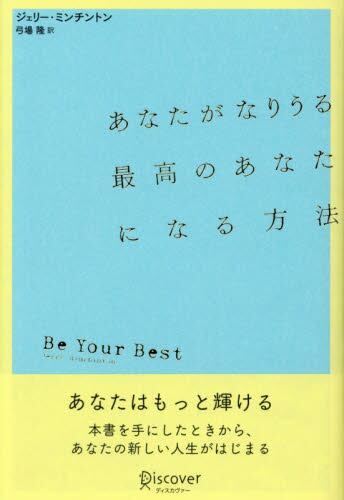 ジェリー・ミンチントン
弓場 隆 訳
あなたがなりうる
最高のあなた
になる方法
Be Your Best
あなたはもっと輝ける
本書を手にしたときから、
あなたの新しい人生がはじまる
Discover
ディスカヴァー